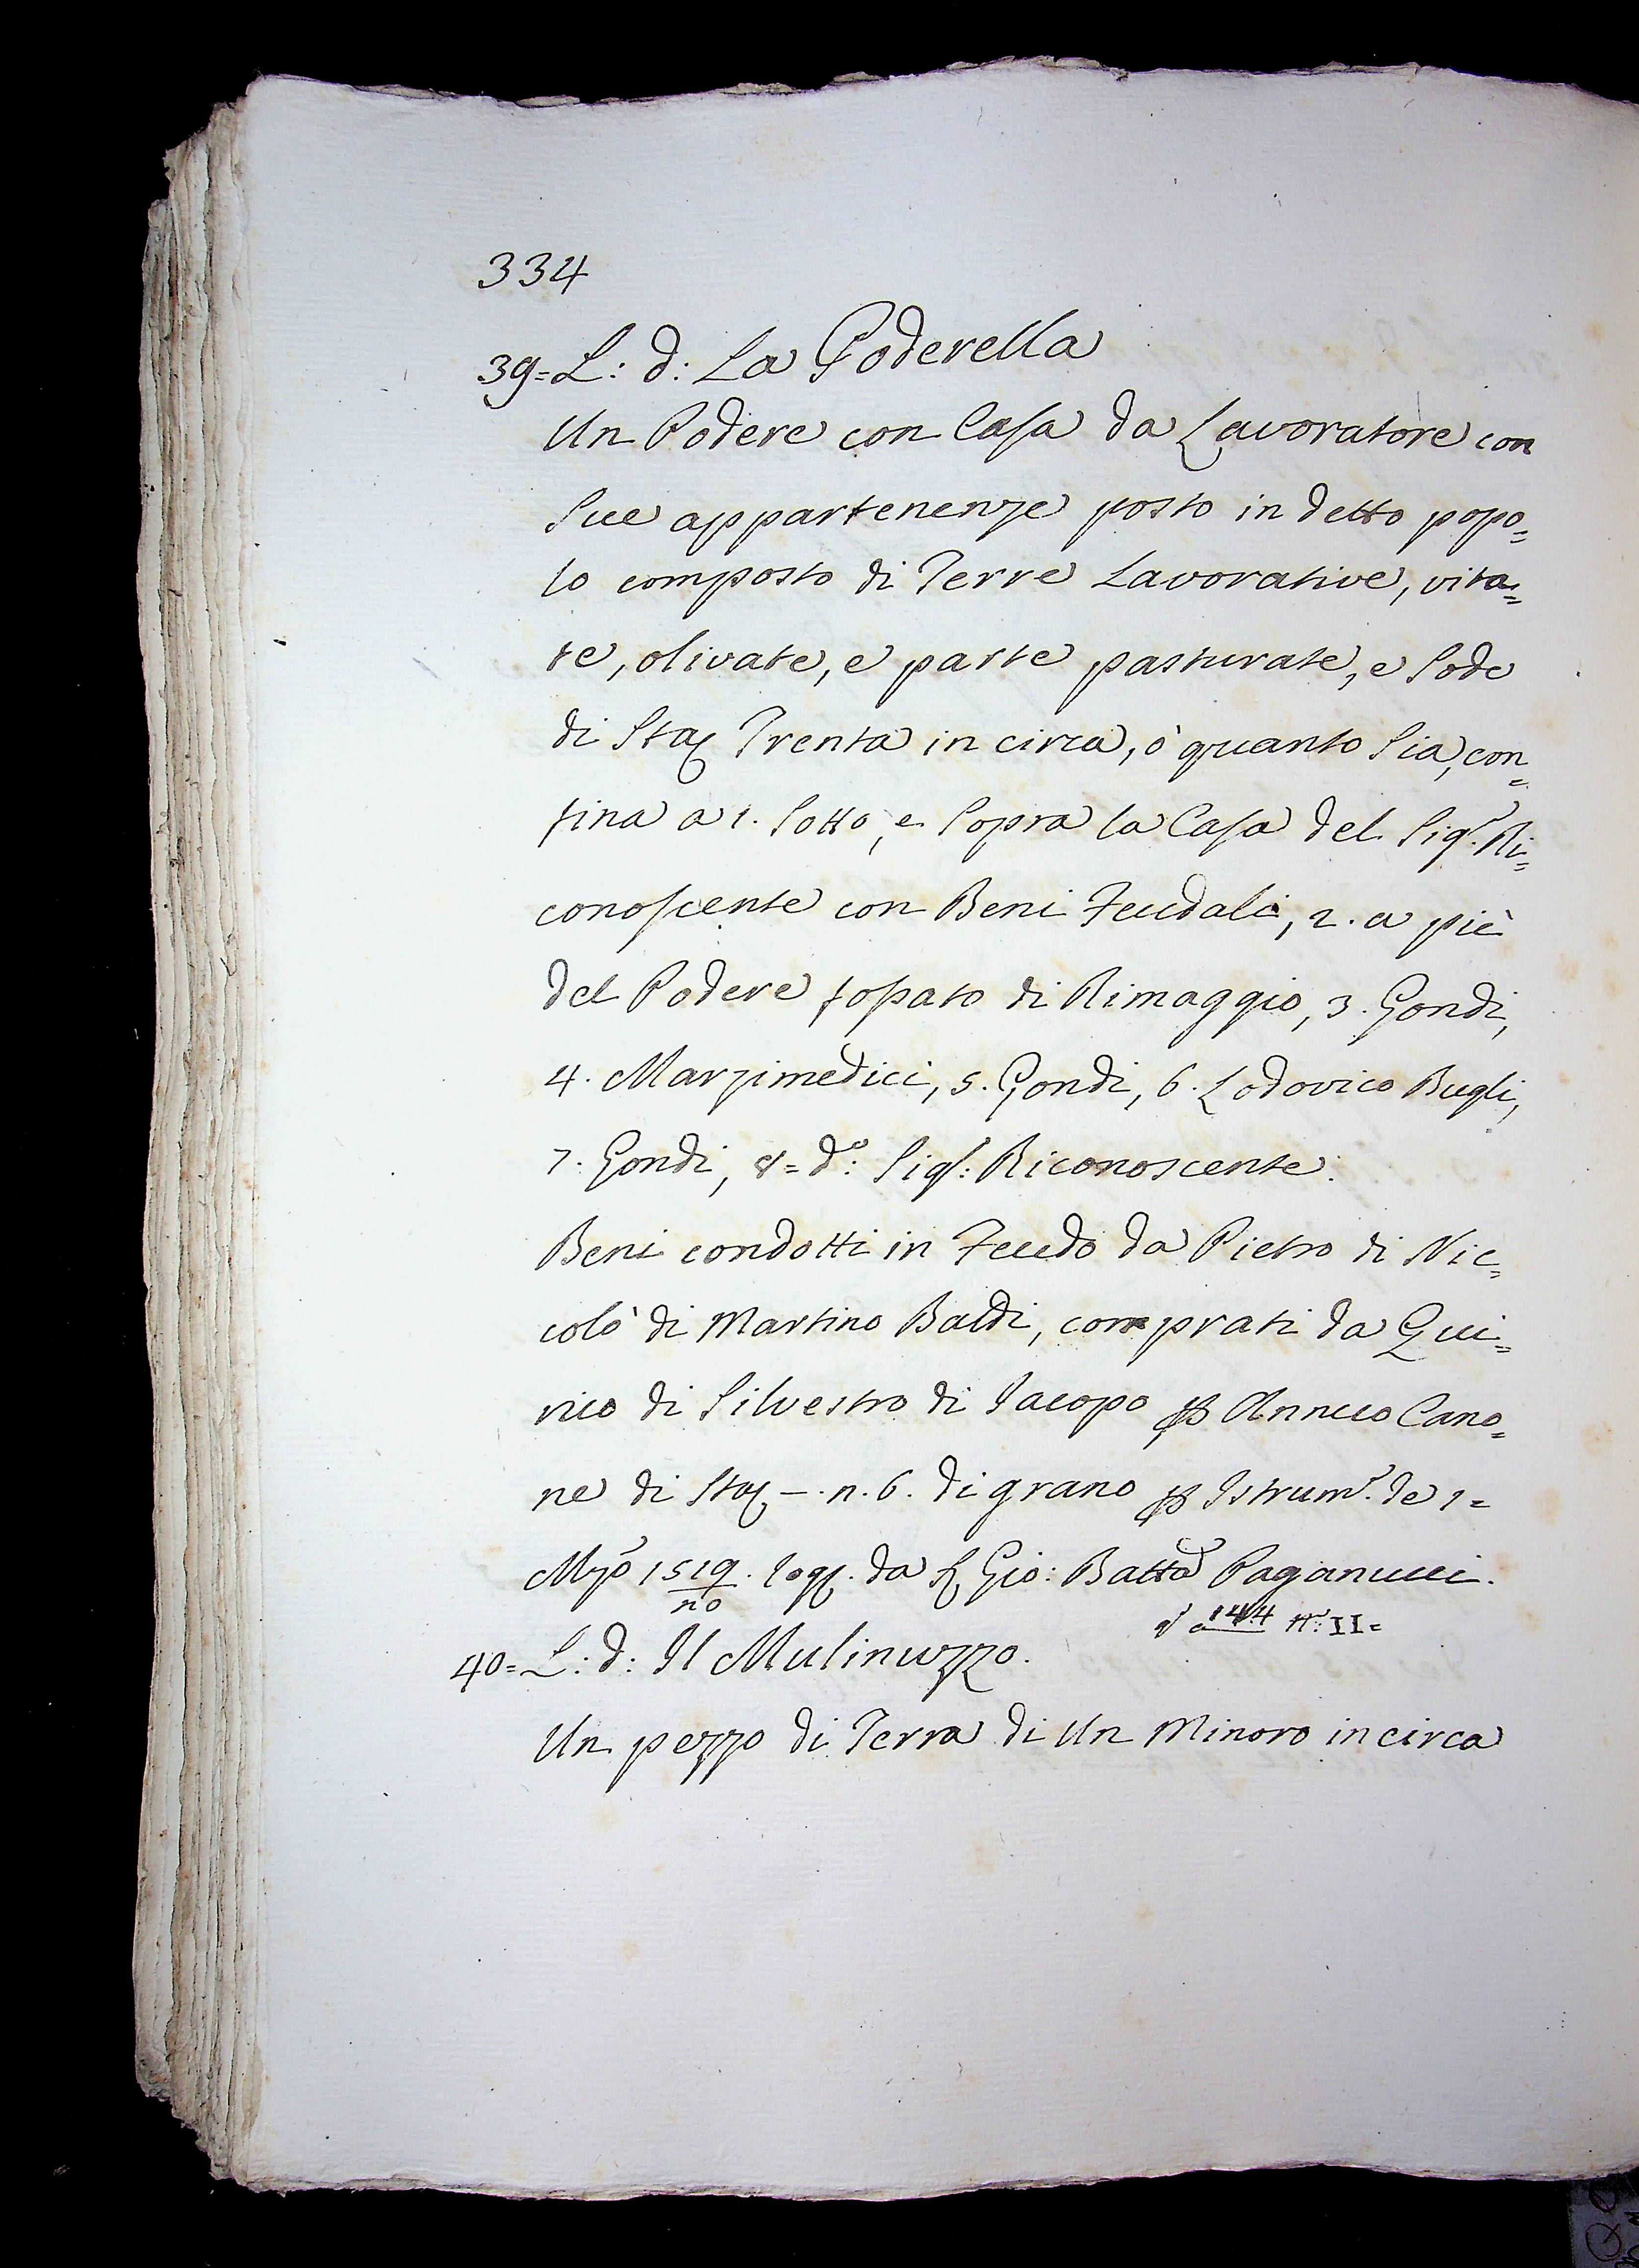 334
39= L: d: La Poderella
Un Podere con Casa da Lavoratore con
Sue appartenenze posto in detto popo=
lo composto di Terre Lavorative, vita=
te, olivate, e parte pasturate, e Sode
di Sta Trenta in circa, ò quanto Sia, con=
fina a 1. Sotto, e Sopra la Casa del Sig.r Ri=
conoscente con Beni Feudali, 2. a piè
del Podere fossato di Rimaggio, 3. Gondi,
4. Marzimedici, 5. Gondi, 6. Lodovico Bugli,
7. Gondi, 8= d.o: Sig.: Riconoscente.
Beni condotti in Feudo da Pietro di Nic=
colò di Martino Baldi, comprati da Qui=
rico di Silvestro di Jacopo p Annuo Cano=
ne di Sta –. n. 6. di grano p Istrum.o de 1=
Mzo 1519. rog. da S Gio: Batta Paganucci.
no
a 144 n.o II=
40= L: d: Il Mulinuzzo.
Un pezzo di Terra di Un Minoro in circa